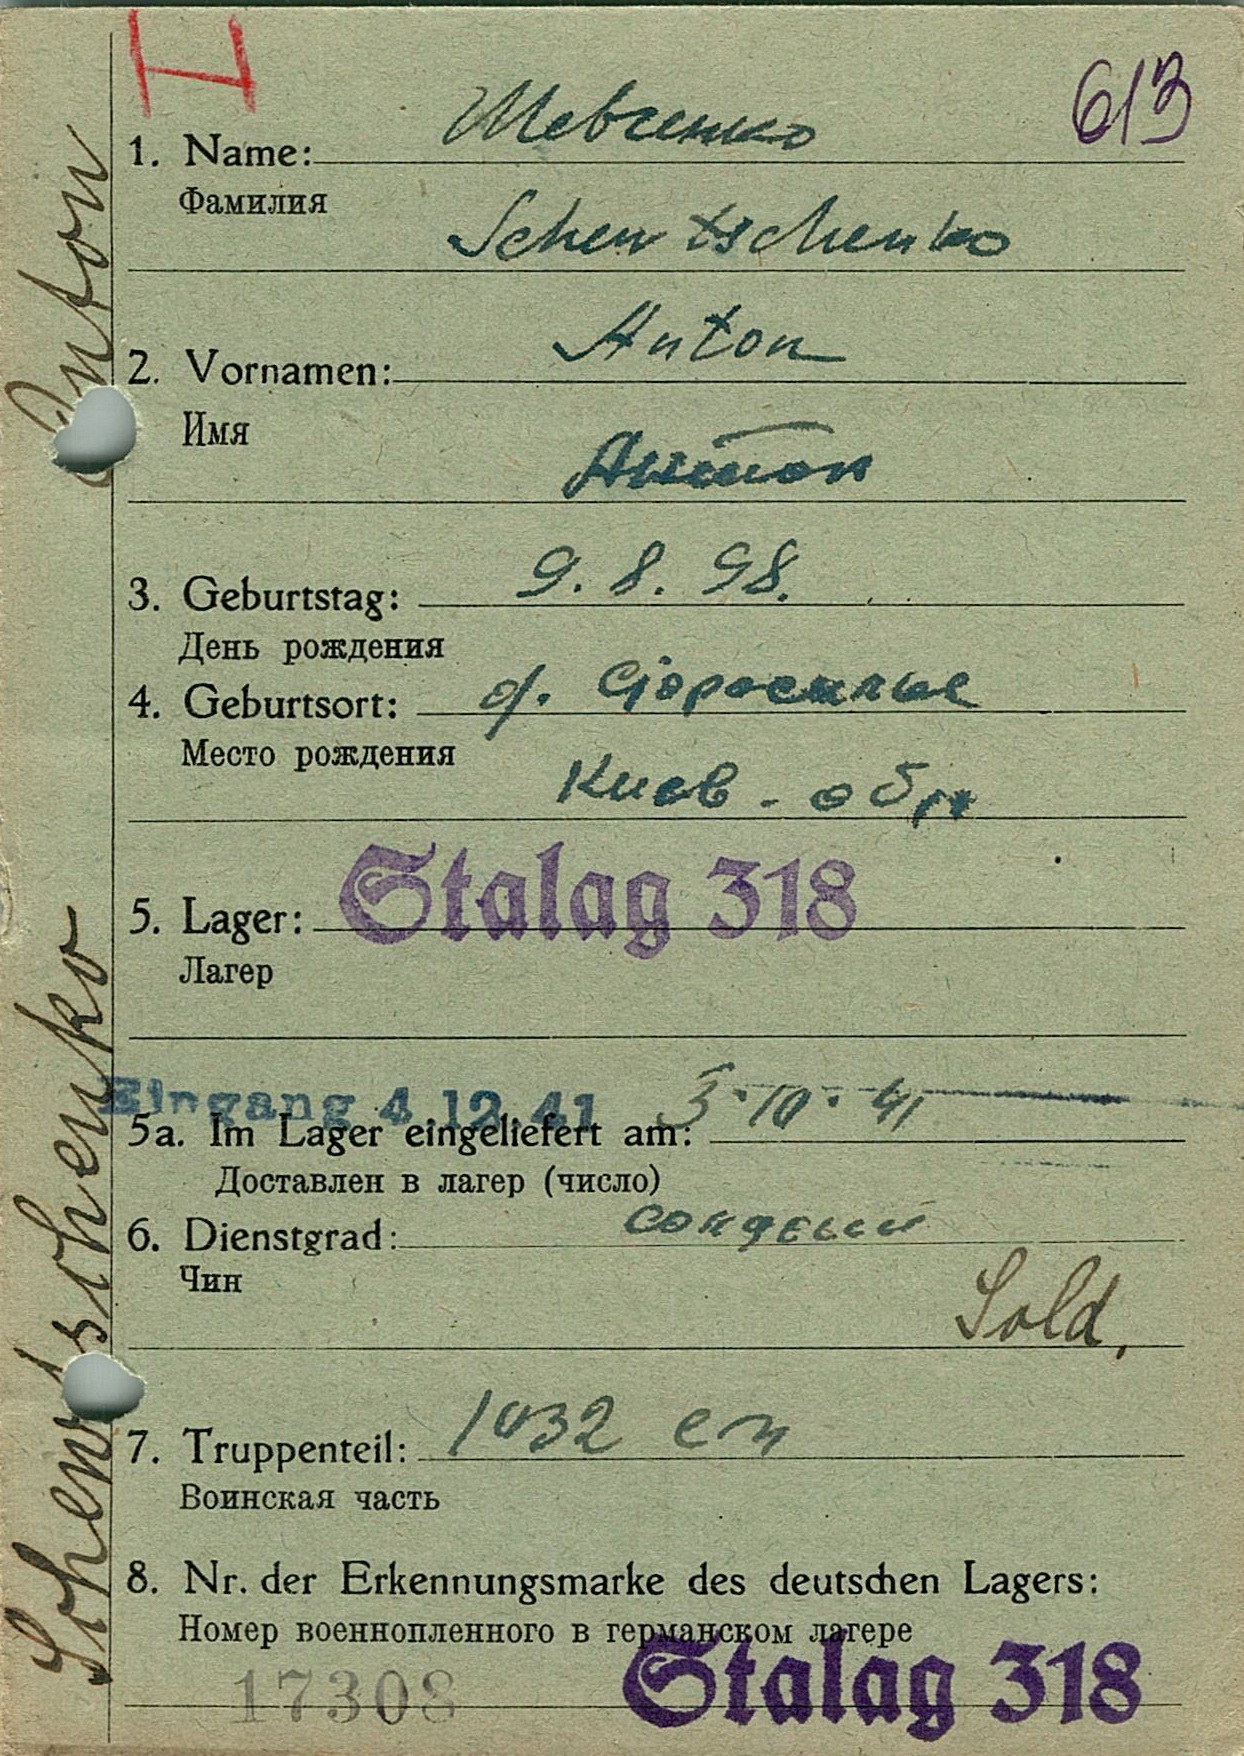 613
1. Name: Шевченко
Фамилия
Schewtschenko
2. Vornamen: Anton
Имя
Антон
3. Geburtstag: 9. 8. 98.
День рождения
4. Geburtsort: д.
Место рождения
Киев - обл
5. Lager: Stalag 318
Лагер
Eingang 4 12. 41
5a. Im Lager eingeliefert am: 3·10·41
Доставлен в лагер (число)
6. Dienstgrad:
Чин
Sold.
7. Truppenteil: 1032 сп
Воинская часть
8. Nr. der Erkennungsmarke des deutschen Lagers:
Номер военнопленного в германском лагере
17308 Stalag 318
Schewtschenko Anton